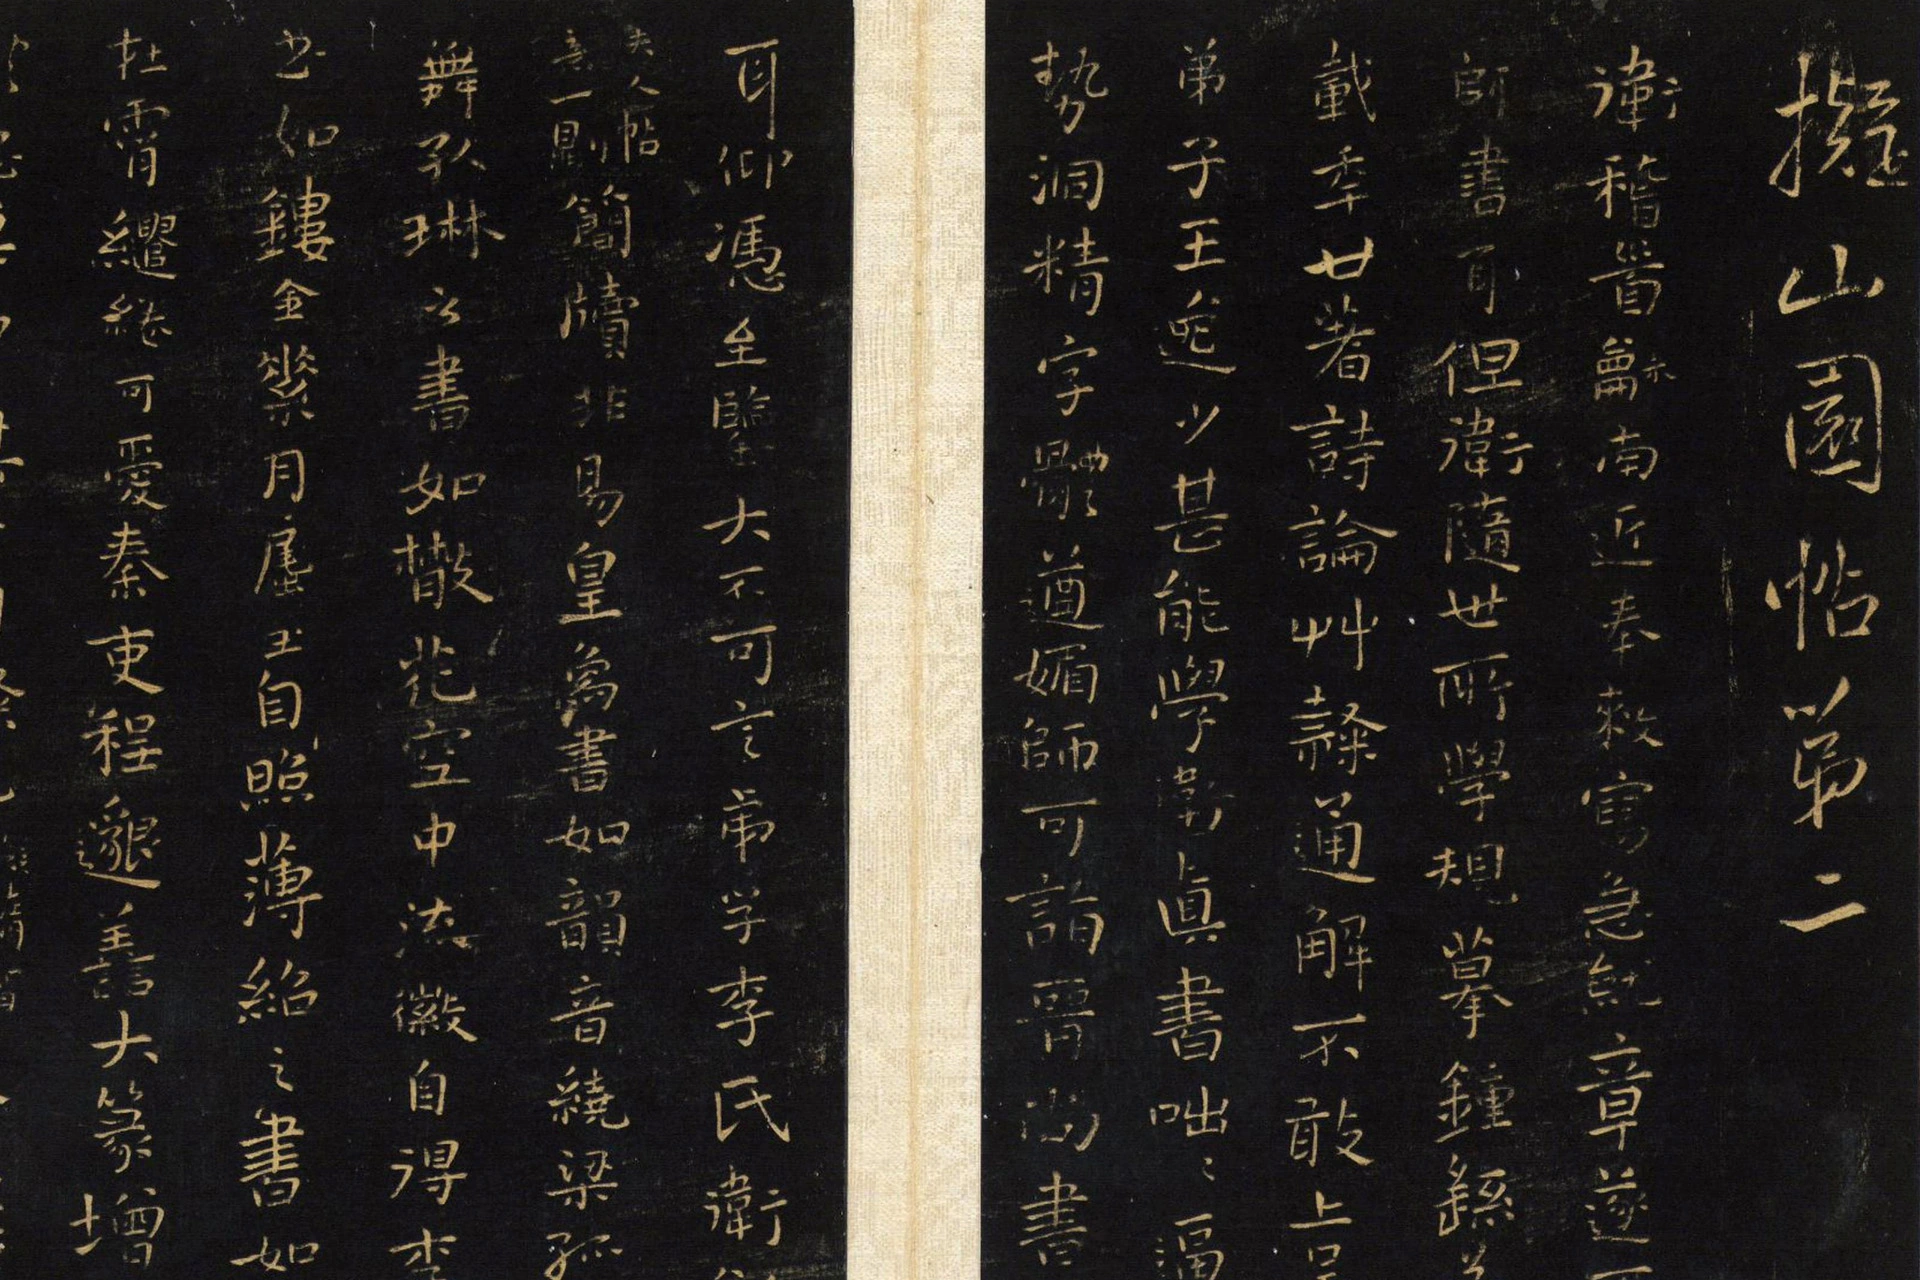 擬山園帖第二
衛稽首龢南近奉敕寫急就章遂
師書耳但衛隨世所學規摹鍾繇
載秊廿著詩論艸隸通解不敢上呈
弟子王逸少甚能學衛眞書咄〻逼
勢洞精字體遒媚師可詣晉尚書
耳仰憑至鑒大不可言弟学李氏衛
夫人帖
一則簡牘非易皇象書如韻音繞梁孤
舞孔琳之書如散花空中流徽自得李
書如鏤金縈月屈玉自照薄紹之書如
杜霄繾綣可愛秦吏程邈善大篆增